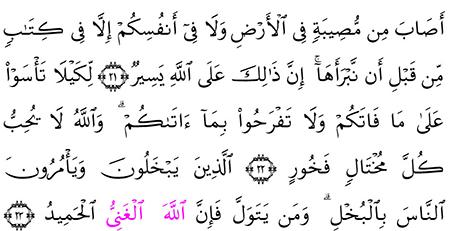 أَصَابَ مِن مُّصِيبَةٖ فِي ٱلۡأَرۡضِ وَلَا فِيٓ أَنفُسِكُمۡ إِلَّا فِي كِتَٰبٖ
مِّن قَبۡلِ أَن نَّبۡرَأَهَآۚ إِنَّ ذَٰلِكَ عَلَى ٱللَّهِ يَسِيرٞ ٢١ لِّكَيۡلَا تَأۡسَوۡاْ
عَلَىٰ مَا فَاتَكُمۡ وَلَا تَفۡرَحُواْ بِمَآ ءَاتَىٰكُمۡۗ وَٱللَّهُ لَا يُحِبُّ
كُلَّ مُخۡتَالٖ فَخُورٍ ٢٢ ٱلَّذِينَ يَبۡخَلُونَ وَيَأۡمُرُونَ
ٱلنَّاسَ بِٱلۡبُخۡلِۗ وَمَن يَتَوَلَّ فَإِنَّ ٱللَّهَ ٱلۡغَنِيُّ ٱلۡحَمِيدُ ٢٣